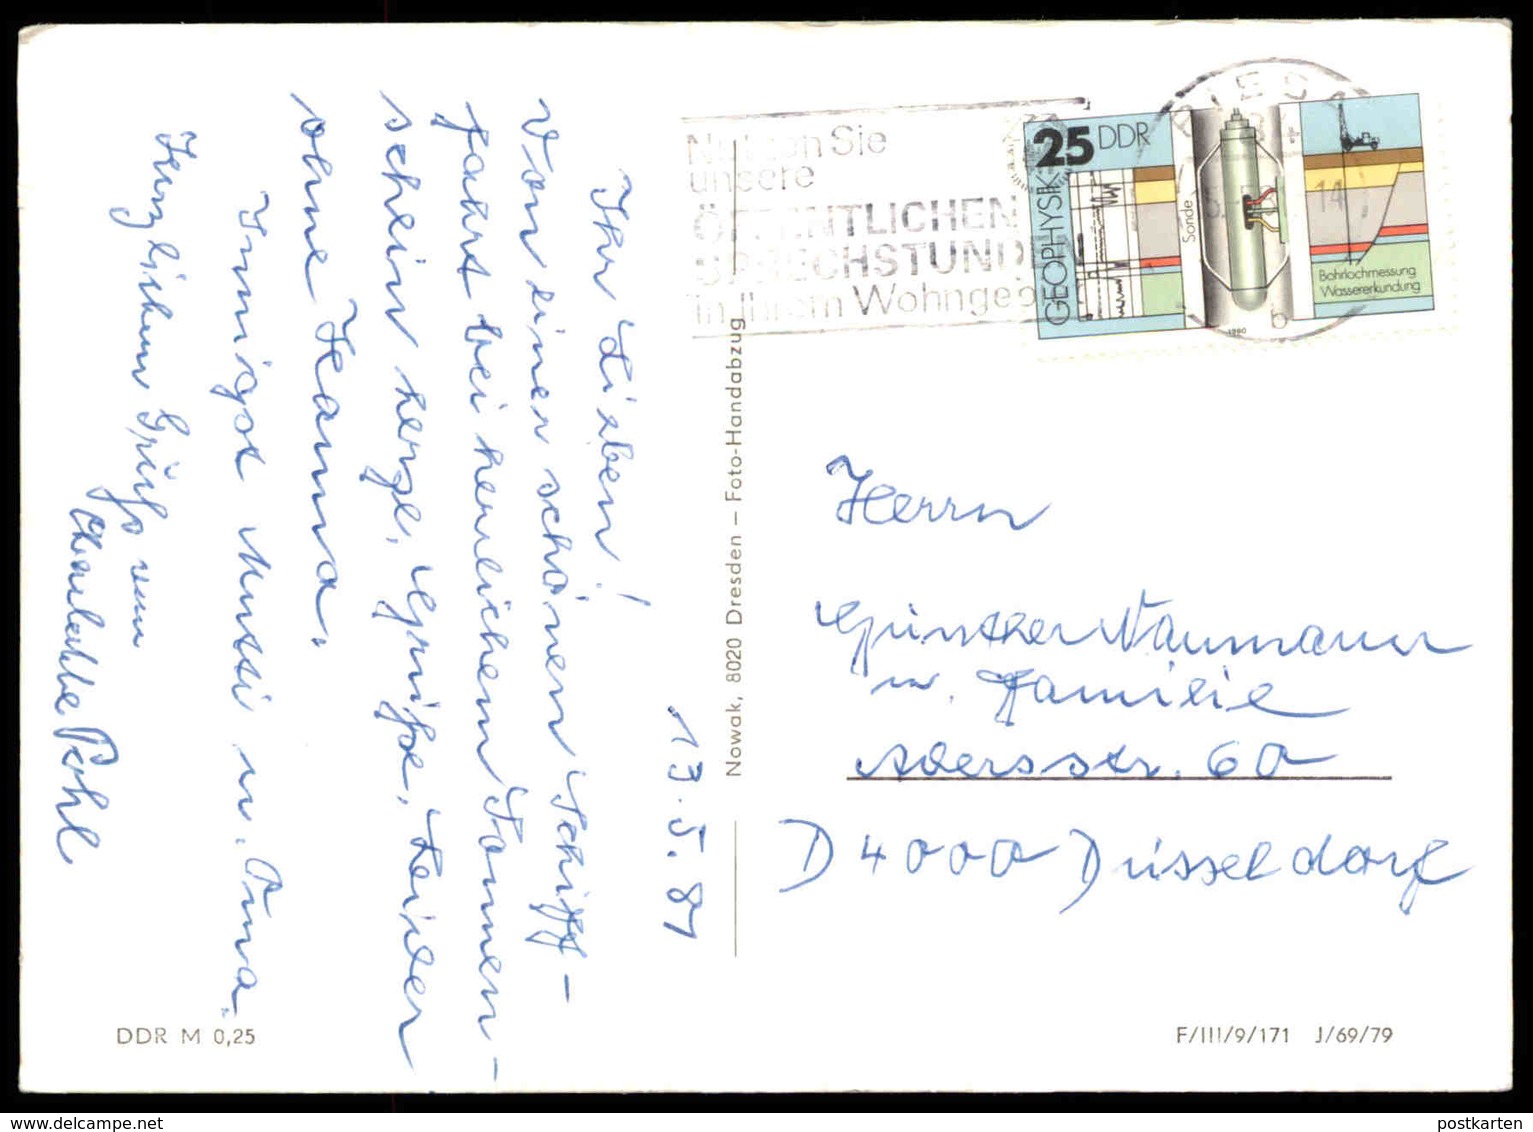 13.5.81
Ihr Lieben!
Von einer schönen Schiff-
fahrt bei herrlichem Sonnen-
schein herzl. Grüße, Leider
ohne Hanna.
Innigst Mutti u. Oma
Herzlichen Gruß von
Pohl
Nowak, 8020 Dresden – Foto-Handabzug
DDR M 0,25
Nutzen Sie
unsere
ÖFFENTLICHEN
SPRECHSTUNDEN
in Ihrem Wohngeb
25 DDR
GEOPHYSIK
Sonde
Bohrlochmessung
Wassererkundung
1980
14
b
Herrn
Günther Naumann
u. Familie
Adersstr. 60
D 4000 Düsseldorf
F/III/9/171 J/69/79
delcampe.net
postkarten